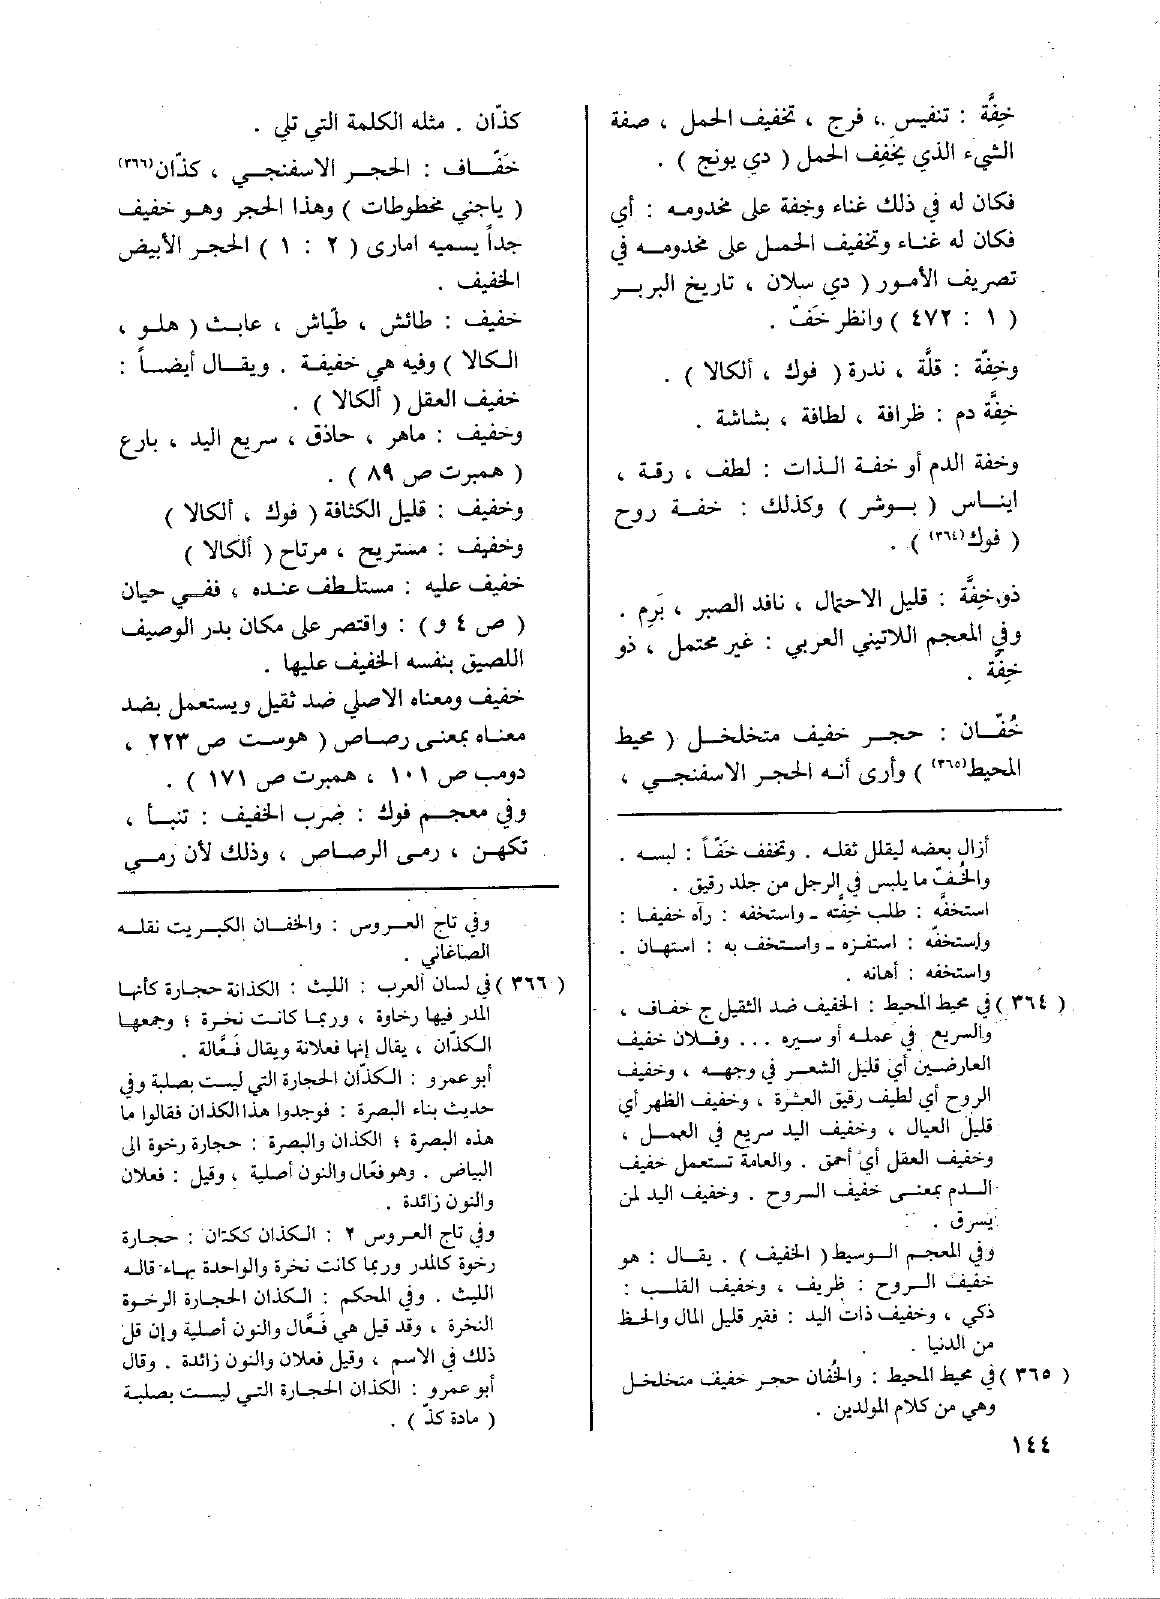 خِفَّة : تنفيس ، فرج ، تخفيف الحمل ، صفة
الشيء الذي يخفف الحمل ( دي يونج ) .
فكان له في ذلك غناء وخفة على مخدومه : أي
فكان له غناء وتخفيف الحمل على مخدومه في
تصريف الأمور ( دي سلان ، تاريخ البربر
( ١ : ٤٧٢ ) وانظر خَفّ .
وخِفّة : قلَّة ، ندرة ( فوك ، ألكالا ) .
خِفَّة دم : ظرافة ، لطافة ، بشاشة .
وخفة الدم أو خفة الذات : لطف ، رقة ،
ايناس ( بوشر ) وكذلك : خفة روح
( فوك(٣٦٤) ) .
ذو خِفَّة : قليل الاحتمال ، نافد الصبر ، بَرِم .
وفي المعجم اللاتيني العربي : غير محتمل ، ذو
خِفَّة .
خُفّان : حجر خفيف متخلخل ( محيط
المحيط(٣٦٥) ) وأرى أنه الحجر الاسفنجي ،
أزال بعضه ليقلل ثقله . وتخفف خَفّاً : لبسه .
والخُفّ ما يلبس في الرجل من جلد رقيق .
استخفَّه : طلب خِفّته ـ واستخفه : رآه خفيفا :
واستخفّه : استفزه ـ واستخف به : استهان .
واستخفه : أهانه .
( ٣٦٤ ) في محيط المحيط : الخفيف ضد الثقيل ج خفاف ،
والسريع في عمله أو سيره ... وفلان خفيف
العارضين أي قليل الشعر في وجهه ، وخفيف
الروح أي لطيف رقيق العشرة ، وخفيف الظهر أي
قليل العيال ، وخفيف اليد سريع في العمل ،
وخفيف العقل أي أحمق . والعامة تستعمل خفيف
الدم بمعنى خفيف الروح . وخفيف اليد لمن
يسرق .
وفي المعجم الوسيط ( الخفيف ) . يقال : هو
خفيف الروح : ظريف ، وخفيف القلب :
ذكي ، وخفيف ذات اليد : فقير قليل المال والحظ
من الدنيا .
( ٣٦٥ ) في محيط المحيط : والخُفان حجر خفيف متخلخل
وهي من كلام المولدين .
١٤٤
كذّان . مثله الكلمة التي تلي .
خَفّاف : الحجر الاسفنجي ، كذّان(٣٦٦)
( ياجني مخطوطات ) وهذا الحجر وهو خفيف
جداً يسميه امارى ( ٢ : ١ ) الحجر الأبيض
الخفيف .
خفيف : طائش ، طيّاش ، عابث ( هلو ،
الكالا ) وفيه هي خفيفة . ويقال أيضاً :
خفيف العقل ( ألكالا ) .
وخفيف : ماهر ، حاذق ، سريع اليد ، بارع
( همبرت ص ٨٩ ) .
وخفيف : قليل الكثافة ( فوك ، ألكالا )
وخفيف : مستريح ، مرتاح ( ألكالا )
خفيف عليه : مستلطف عنده ، ففي حيان
( ص ٤ و ) : واقتصر على مكان بدر الوصيف
اللصيق بنفسه الخفيف عليها .
خفيف ومعناه الاصلي ضد ثقيل ويستعمل بضد
معناه بمعنى رصاص ( هوست ص ٢٢٣ ،
دومب ص ١٠١ ، همبرت ص ١٧١ ) .
وفي معجم فوك : ضرب الخفيف : تنبأ ،
تكهن ، رمى الرصاص ، وذلك لأن رمي
وفي تاج العروس : والخفان الكبريت نقله
الصاغاني .
( ٣٦٦ ) في لسان العرب : الليث : الكذانة حجارة كأنها
المدر فيها رخاوة ، وربما كانت نخرة ؛ وجمعها
الكذّان ، يقال إنها فعلانة ويقال فَعَّالة .
أبو عمرو : الكذّان الحجارة التي ليست بصلبة وفي
حديث بناء البصرة : فوجدوا هذا الكذان فقالوا ما
هذه البصرة ؛ الكذان والبصرة : حجارة رخوة الى
البياض . وهو فعّال والنون أصلية ، وقيل : فعلان
والنون زائدة .
وفي تاج العروس ٢ : الكذان ككتان : حجارة
رخوة كالمدر وربما كانت نخرة والواحدة بهاء قاله
الليث . وفي المحكم : الكذان الحجارة الرخوة
النخرة ، وقد قيل هي فَعَّال والنون أصلية وإن قل
ذلك في الاسم ، وقيل فعلان والنون زائدة . وقال
أبو عمرو : الكذان الحجارة التي ليست بصلبة
( مادة كذّ ) .